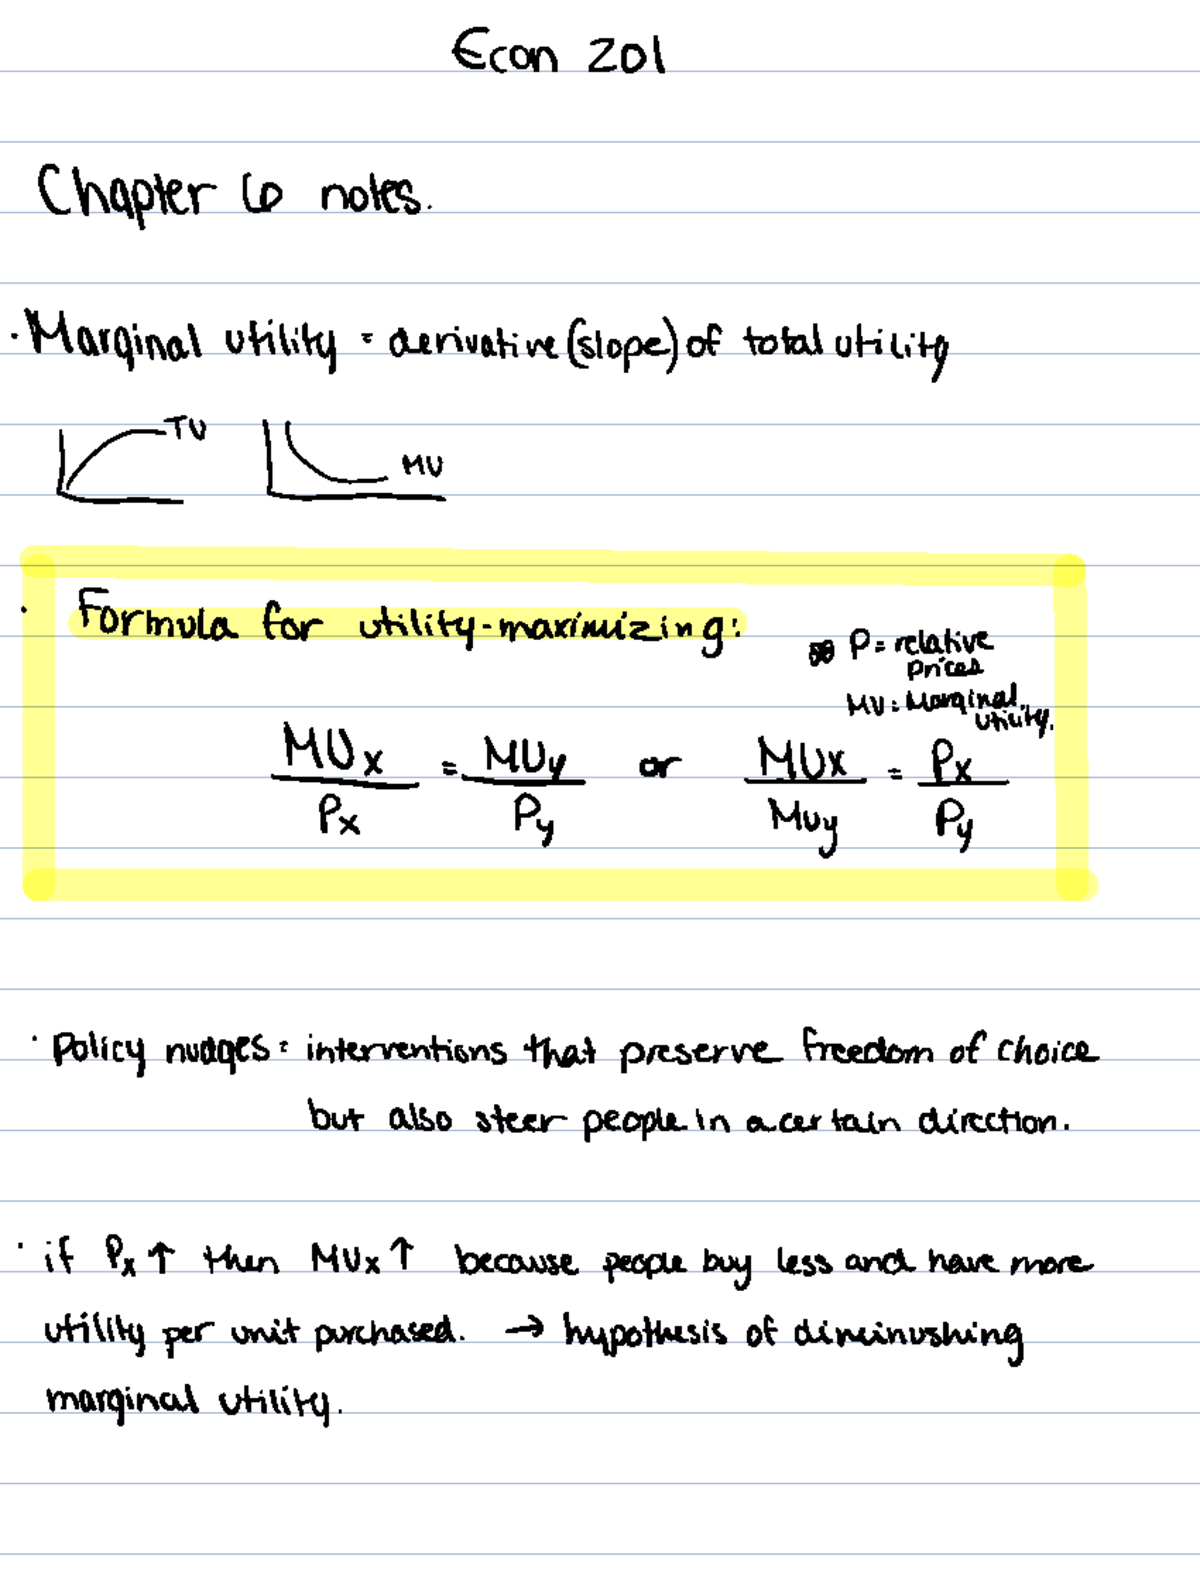 Econ 201
Chapter 6 notes.
· Marginal utility = derivative (slope) of total utility
TU
MU
· Formula for utility-maximizing:
P = relative
prices
MU = Marginal
utility.
MUx = MUy or MUx = Px
Px Py MUy Py
· Policy nudges = interventions that preserve freedom of choice
but also steer people in a certain direction.
· if Px ↑ then MUx ↑ because people buy less and have more
utility per unit purchased. → hypothesis of diminushing
marginal utility.